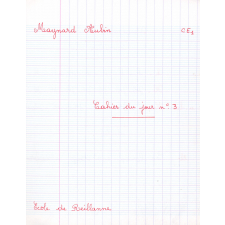 Maynard Aubin CE1
Cahier du jour n° 3
Ecole de Reillanne